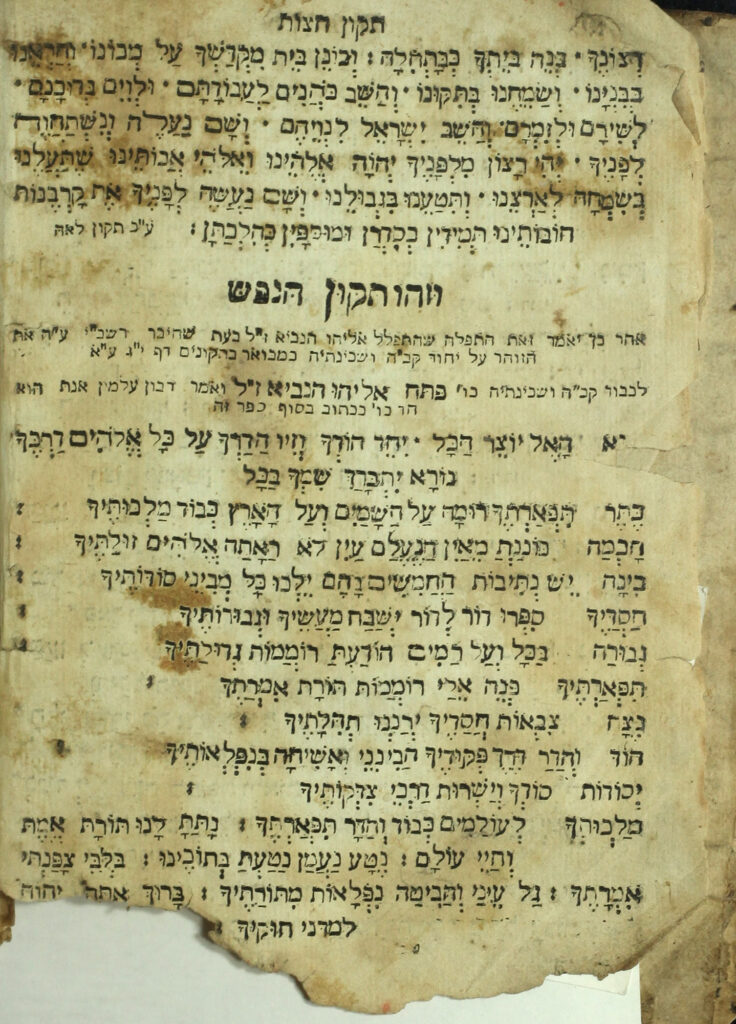 תקון חצות
רצונך · בנה ביתך כבתחלה : וכונן בית מקדשך על מכונו · והראנו
בבנינו · ושמחנו בתקונו · והשב כהנים לעבודתם · ולוים בדוכנם ·
לשירם ולזמרם · והשב ישראל לנויהם · ושם נעלה ונשתחוה
לפניך · יהי רצון מלפניך יהוה אלהינו ואלהי אבותינו שתעלנו
בשמחה לארצנו · ותטענו בגבולנו · ושם נעשה לפניך את קרבנות
חובותינו תמידין כסדרן ומוספין כהלכתן : ע"כ תקון לאה
וזהו תקון הנפש
אחר כך יאמר זאת התפלה שהתפלל אליהו הנביא ז"ל בעת שחיבר רשב"י ע"ה את
הזוהר על יחוד קב"ה ושכינתיה כמבואר בתקונים דף י"ג ע"א
לכבוד קב"ה ושכינתיה כו' פתח אליהו הנביא ז"ל ואמר רבון עלמין אנת הוא
חד כו' ככתוב בסוף ספר זה
יא האל יוצר הכל · יחד הודך וזיו הדרך על כל אלהים דרכך
נורא יתברך שמך בכל
כתר תפארתך רומה על השמים ועל הארץ כבוד מלכותיך :
חכמה כוננת מאין הנעלם עין לא ראתה אלהים זולתיך :
בינה יש נתיבות החמשים בהם ילכו כל מביני סודותיך :
חסדיך ספרו דור לדור ישבח מעשיך וגבורותיך :
גבורה בכל ועל רמים הודעת רוממות גדולתיך :
תפארתיך פנה אלי רוממות תורת אמרתך :
נצח צבאות חסדיך ירננו תהלתיך :
הוד והדר דרך פקודיך הבינני ואשיחה בנפלאותיך :
יסודות סודך וישרות דרכי צדקותיך :
מלכותך לעולמים כבוד והדר תפארתך : נתת לנו תורת אמת
וחיי עולם : נטע נעמן נטעת בתוכינו : בלבי צפנתי
אמרתך : גל עיני והביטה נפלאות מתורתיך : ברוך אתה יהוה
למדני חוקיך :